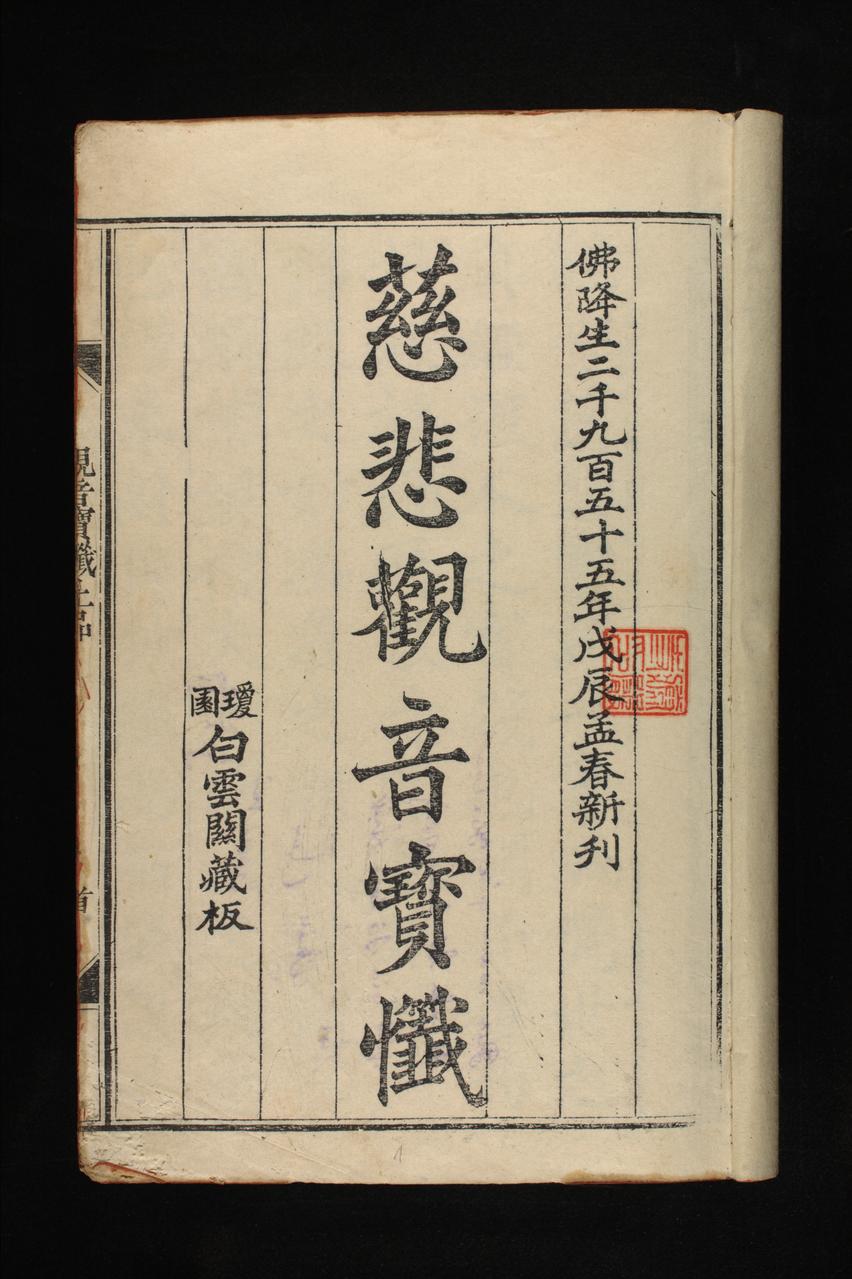 佛降生二千九百五十五年戊辰孟春新刋
慈悲觀音寶懺
瓊園
白雲闗藏板
觀音寶懺
首